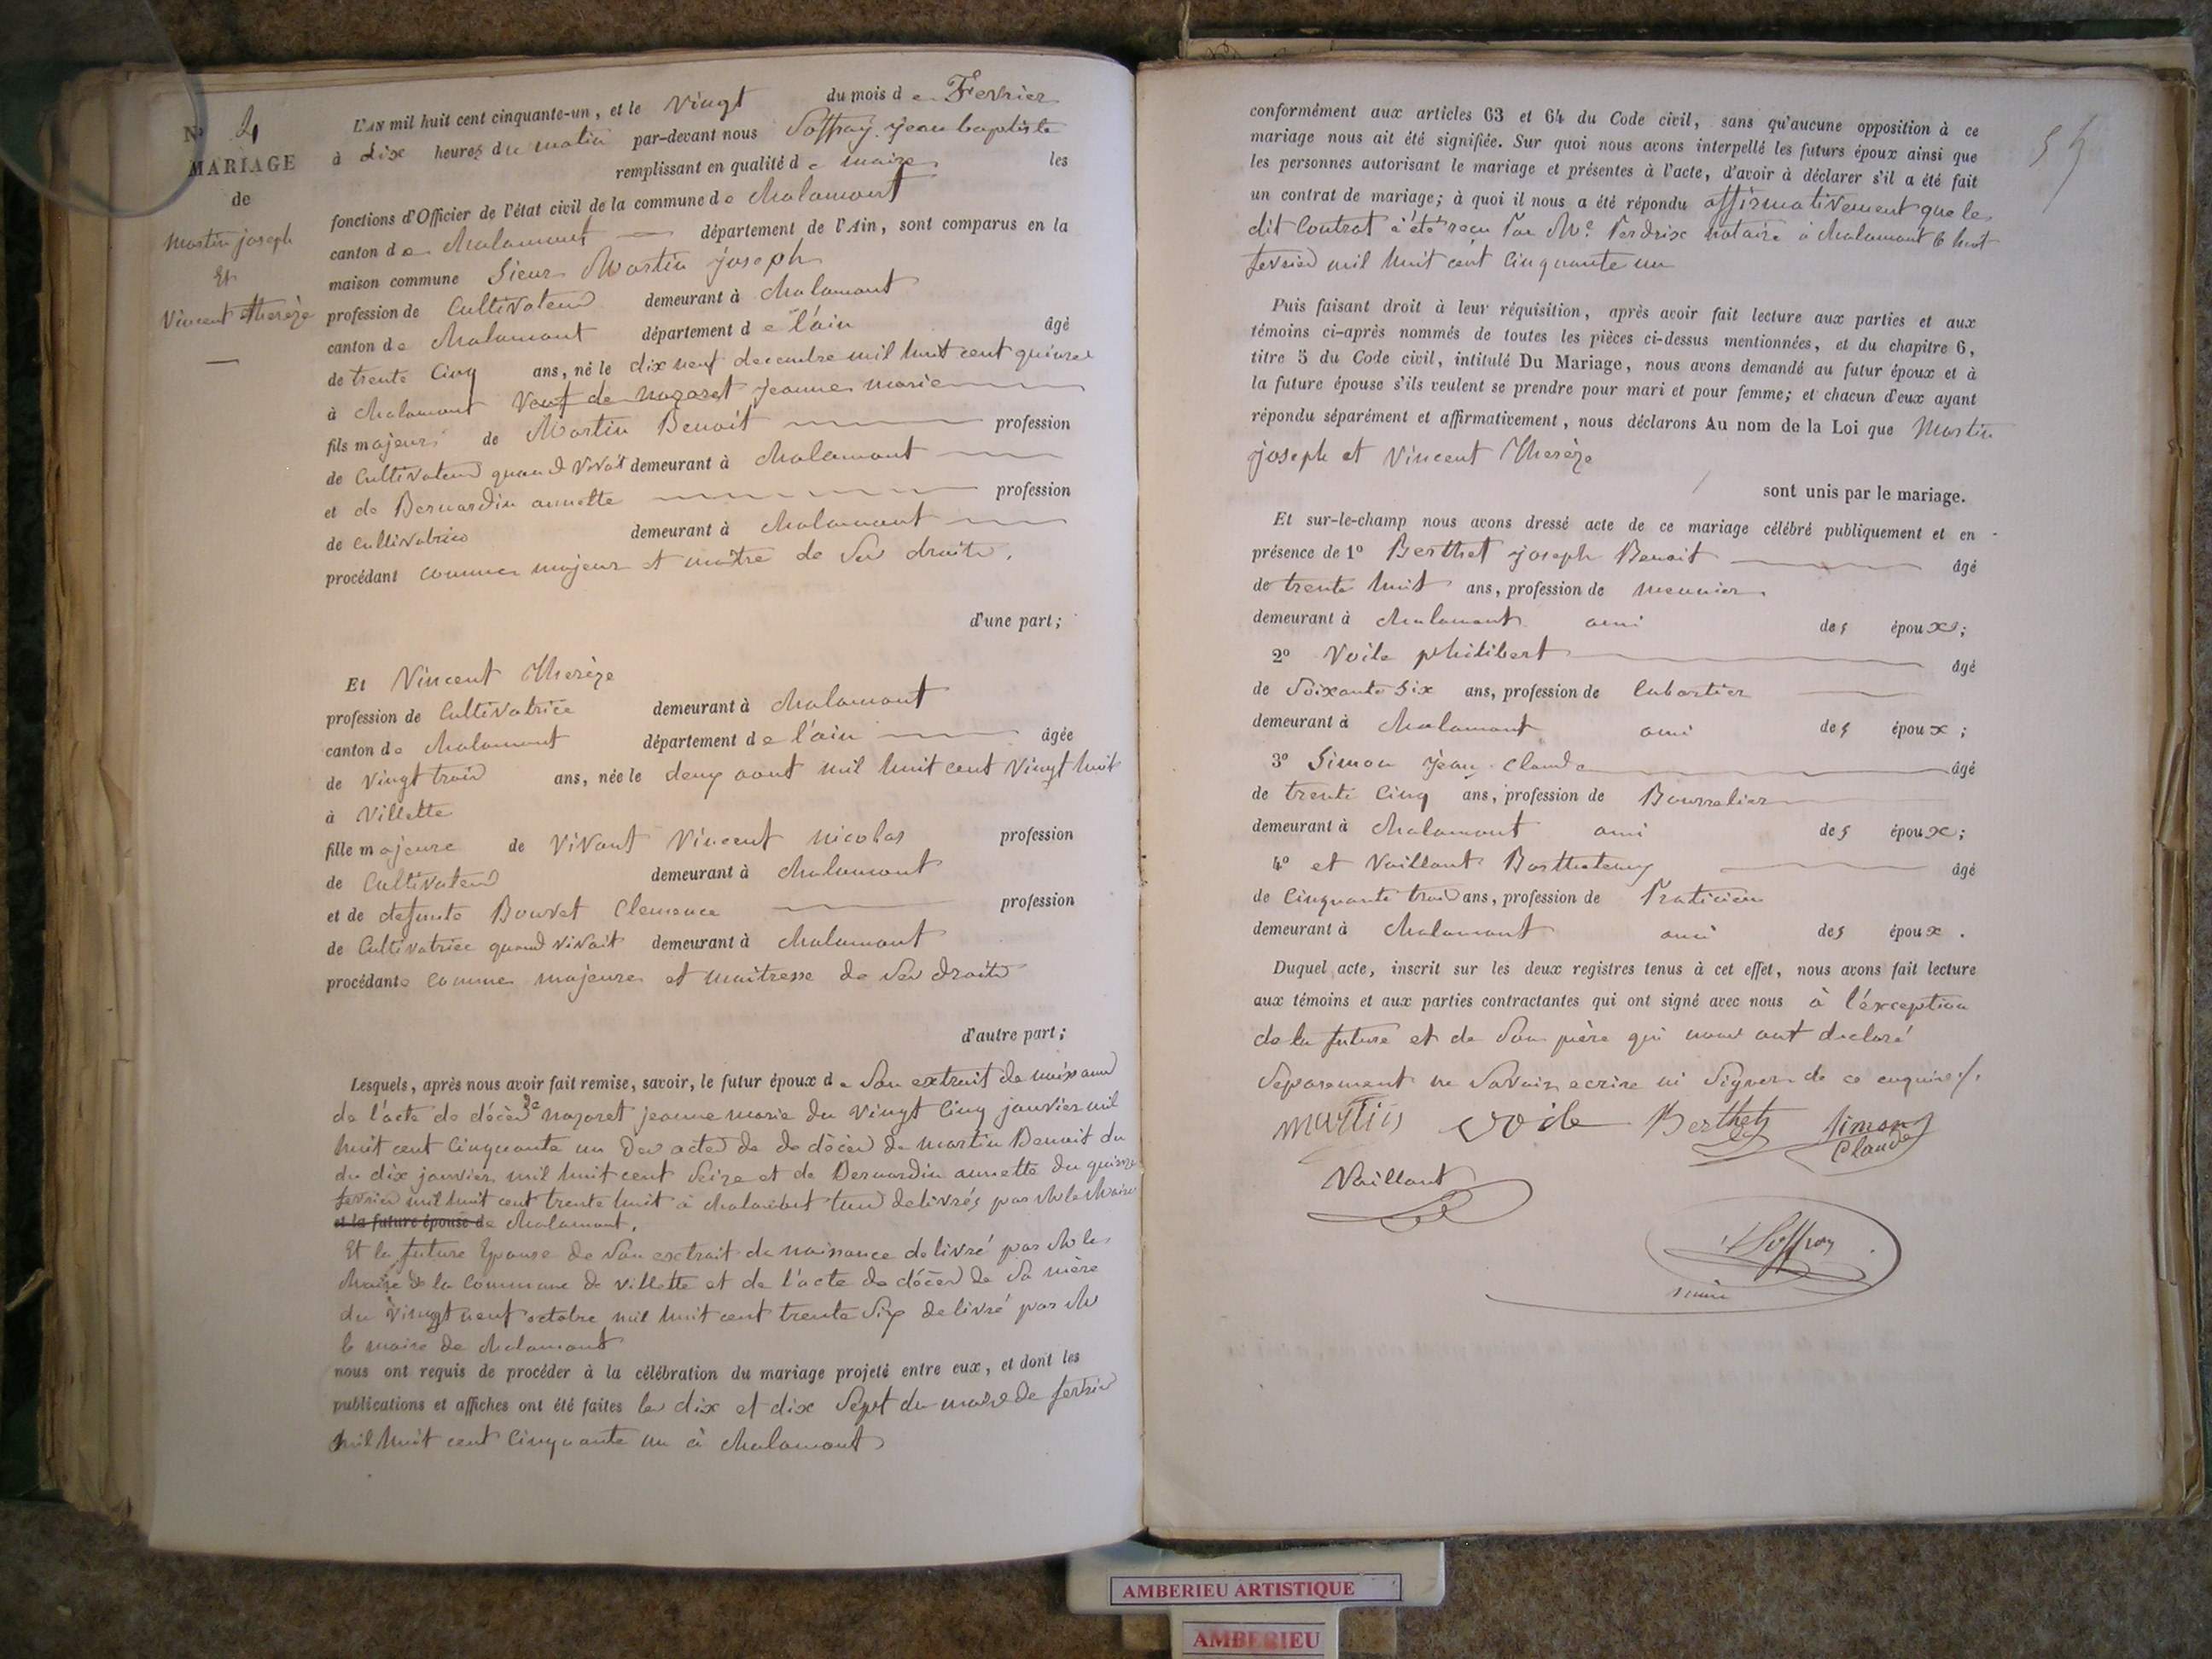 N° 4
MARIAGE
de
Martin joseph
Et
Vincent therèze
L'AN mil huit cent cinquante-un, et le vingt du mois de Fevrier
à dix heures du matin par-devant nous Soffray Jean baptiste
remplissant en qualité de maire les
fonctions d'Officier de l'état civil de la commune de chalamont
canton de chalamont département de l'Ain, sont comparus en la
maison commune Sieur Martin joseph
profession de Cultivateur demeurant à chalamont
canton de chalamont département de l'ain âgé
de trente Cinq ans, né le dix neuf decembre mil huit cent quinze
à chalamont Veuf de nazaret jeanne marie
fils majeur de Martin Benoit profession
de Cultivateur quand vivait demeurant à chalamont
et de Bernardin annette profession
de cultivatrice demeurant à chalamont
procédant comme majeur et maître de ses droits.
d'une part;
Et Vincent Therèze
profession de Cultivatrice demeurant à chalamont
canton de chalamont département de l'ain âgée
de vingt trois ans, née le deux aout mil huit cent vingt huit
à Villette
fille majeure de vivant Vincent nicolas profession
de Cultivateur demeurant à chalamont
et de defunte Bouvet Clemence profession
de Cultivatrice quand vivait demeurant à chalamont
procédante comme majeure et maitresse de ses droits
d'autre part;
Lesquels, après nous avoir fait remise, savoir, le futur époux de son extrait de naissance
de l'acte de décès de nazaret jeanne marie du vingt Cinq janvier mil
huit cent Cinquante un des actes de de décès de martin Benoit du
du dix janvier mil huit cent seize et de Bernardin annette du quinze
fevrier mil huit cent trente huit à chalamont tous delivrés par Mr le Maire
et la future épouse de chalamont.
Et la future Epouse de son extrait de naissance delivré par Mr le
Maire de la Commune de Villette et de l'acte de décès de sa mère
du vingt neuf octobre mil huit cent trente six delivré par Mr
le maire de chalamont
nous ont requis de procéder à la célébration du mariage projeté entre eux, et dont les
publications et affiches ont été faites les dix et dix sept du mois de fevrier
mil huit cent Cinquante un à chalamont
conformément aux articles 63 et 64 du Code civil, sans qu'aucune opposition à ce
mariage nous ait été signifiée. Sur quoi nous avons interpellé les futurs époux ainsi que
les personnes autorisant le mariage et présentes à l'acte, d'avoir à déclarer s'il a été fait
un contrat de mariage; à quoi il nous a été répondu affirmativement que le
dit Contrat a été reçu Par Me. Perdrix notaire à chalamont le huit
fevrier mil huit cent Cinquante un
Puis faisant droit à leur réquisition, après avoir fait lecture aux parties et aux
témoins ci-après nommés de toutes les pièces ci-dessus mentionnées, et du chapitre 6,
titre 5 du Code civil, intitulé Du Mariage, nous avons demandé au futur époux et à
la future épouse s'ils veulent se prendre pour mari et pour femme; et chacun d'eux ayant
répondu séparément et affirmativement, nous déclarons Au nom de la Loi que Martin
joseph et Vincent Therèze
sont unis par le mariage.
Et sur-le-champ nous avons dressé acte de ce mariage célébré publiquement et en
présence de 1° Berthet joseph Benoit âgé
de trente huit ans, profession de meunier
demeurant à chalamont ami des époux;
2° Voile philibert âgé
de Soixante Six ans, profession de Cabartier
demeurant à chalamont ami des époux;
3° Simon Jean Claude âgé
de trente Cinq ans, profession de Bourrelier
demeurant à chalamont ami des époux;
4° et Vaillant Barthelemy âgé
de Cinquante trois ans, profession de Praticien
demeurant à chalamont ami des époux.
Duquel acte, inscrit sur les deux registres tenus à cet effet, nous avons fait lecture
aux témoins et aux parties contractantes qui ont signé avec nous à l'éxception
de la future et de son père qui nous ont declaré
séparement ne savoir ecrire ni signer de ce enquis.
Martin voile Berthet Simon
Claude
Vaillant
Soffray
maire
AMBERIEU ARTISTIQUE
AMBERIEU